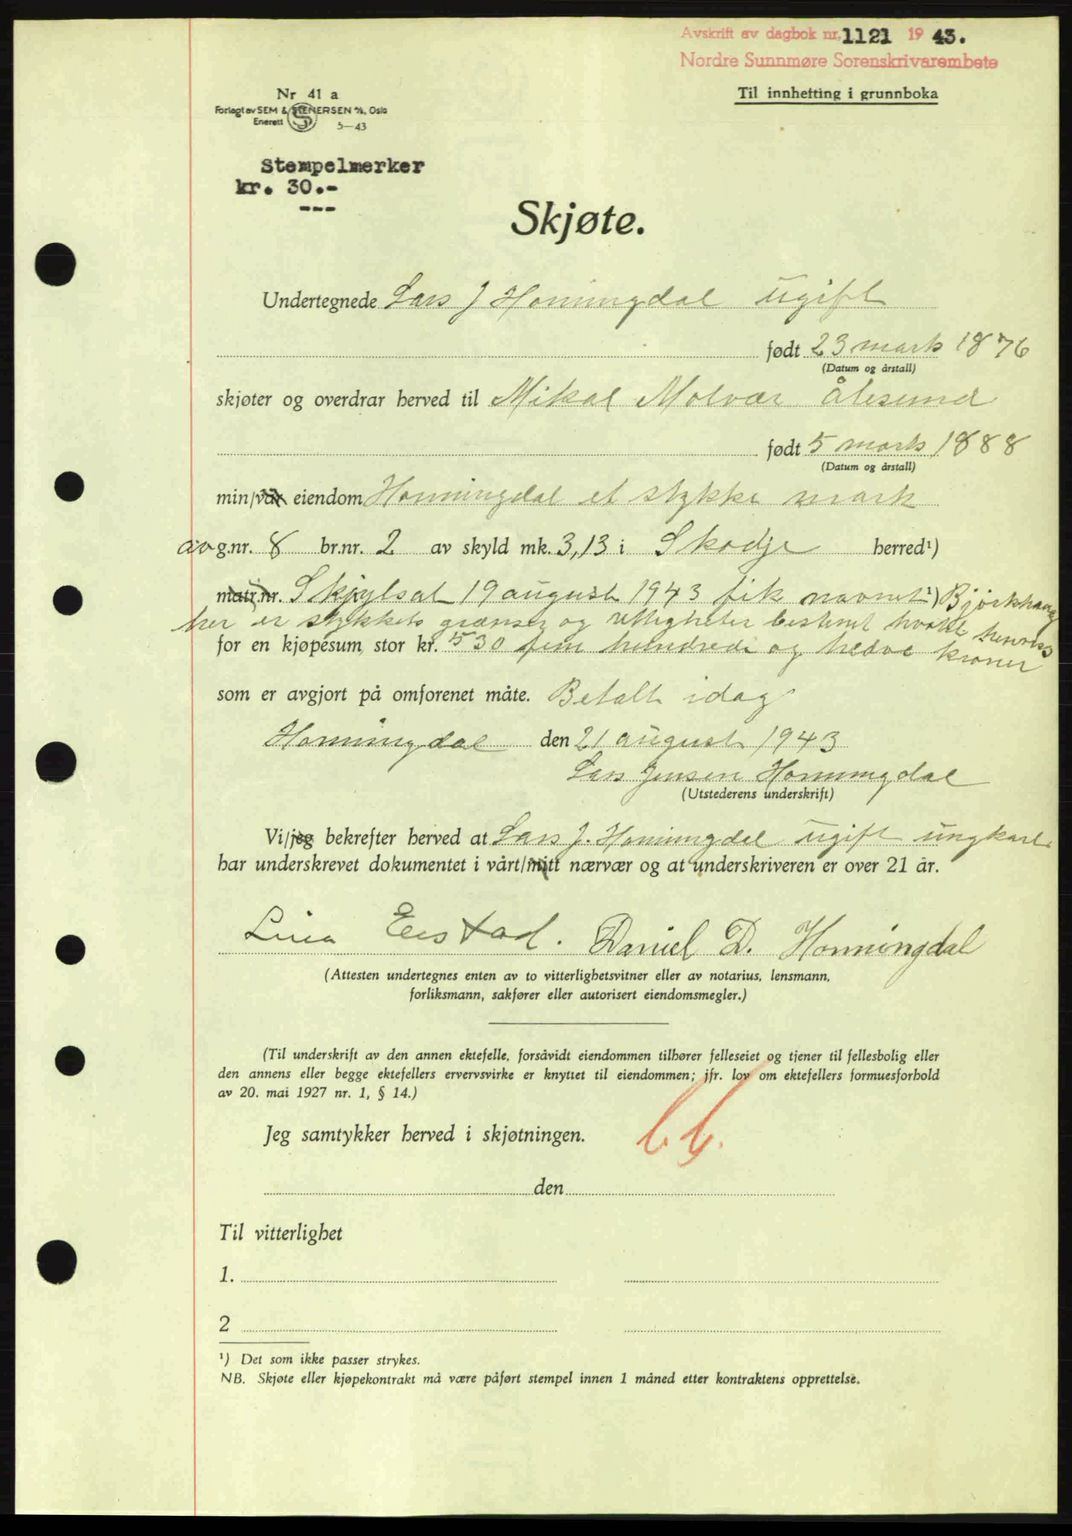 Avskrift av dagbok nr. 1121 1943.
Nordre Sunnmøre Sorenskrivarembete
Til innhefting i grunnboka
Nr 41 a
Forlagt av SEM & STENERSEN A/S, Oslo
Enerett 5-43
Stempelmerker
kr. 30.-
---
Skjøte.
Undertegnede Lars J Honningdal ugift
født 23 mars 1876
(Datum og årstall)
skjøter og overdrar herved til Mikal Molvær Ålesund
født 5 mars 1888
(Datum og årstall)
min/vår eiendom Honningdal et stykke mark
av g.nr. 8 br.nr. 2 av skyld mk. 3,13 i Skodje herred¹)
matr.nr. Skjylsat 19 august 1943 fik navnet ¹) Bjørkhaug
her er stykkets grænser og rettigheter bestemt
for en kjøpesum stor kr. 530 fem hundrede og tredve kroner
som er avgjort på omforenet måte. Betalt idag
Honningdal den 21 august 1943
Lars Jensen Honningdal
(Utstederens underskrift)
Vi/jeg bekrefter herved at Lars J. Honningdal ugift ungkarl
har underskrevet dokumentet i vårt/mitt nærvær og at underskriveren er over 21 år.
Lina Eerstad. Daniel D. Honningdal
(Attesten undertegnes enten av to vitterlighetsvitner eller av notarius, lensmann,
forliksmann, sakfører eller autorisert eiendomsmegler.)
(Til underskrift av den annen ektefelle, forsåvidt eiendommen tilhører felleseiet og tjener til fellesbolig eller
den annens eller begge ektefellers ervervsvirke er knyttet til eiendommen; jfr. lov om ektefellers formuesforhold
av 20. mai 1927 nr. 1, § 14.)
Jeg samtykker herved i skjøtningen.
den
Til vitterlighet
1.
2
¹) Det som ikke passer strykes.
NB. Skjøte eller kjøpekontrakt må være påført stempel innen 1 måned etter kontraktens opprettelse.